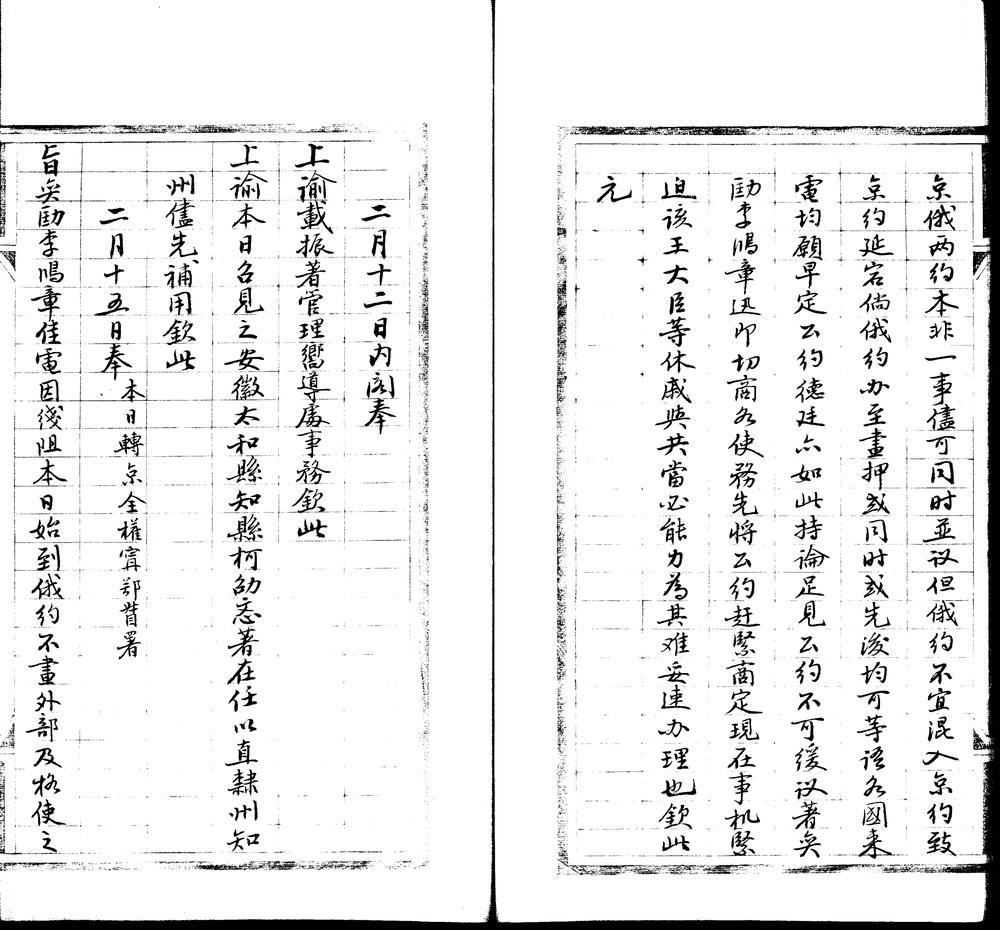 京俄两约本非一事儘可同时並议但俄约不宜混入京约致
京约延宕倘俄约办至畫押或同时或先後均可等语各國来
電均願早定公约德廷亦如此持論足见公约不可缓议著奕
劻李鴻章迅即切商各使務先将公约赶緊商定現在事机緊
迫该王大臣等休戚與共當必能力為其难妥速办理也欽此
元
二月十二日内阁奉
上諭載振著管理嚮導處事務欽此
上諭本日召見之安徽太和縣知縣柯劭忞著在任以直隸州知
州儘先補用欽此
二月十五日奉 本日轉京全權寗鄂督署
旨奕劻李鴻章佳電因綫阻本日始到俄约不畫外部及格使之